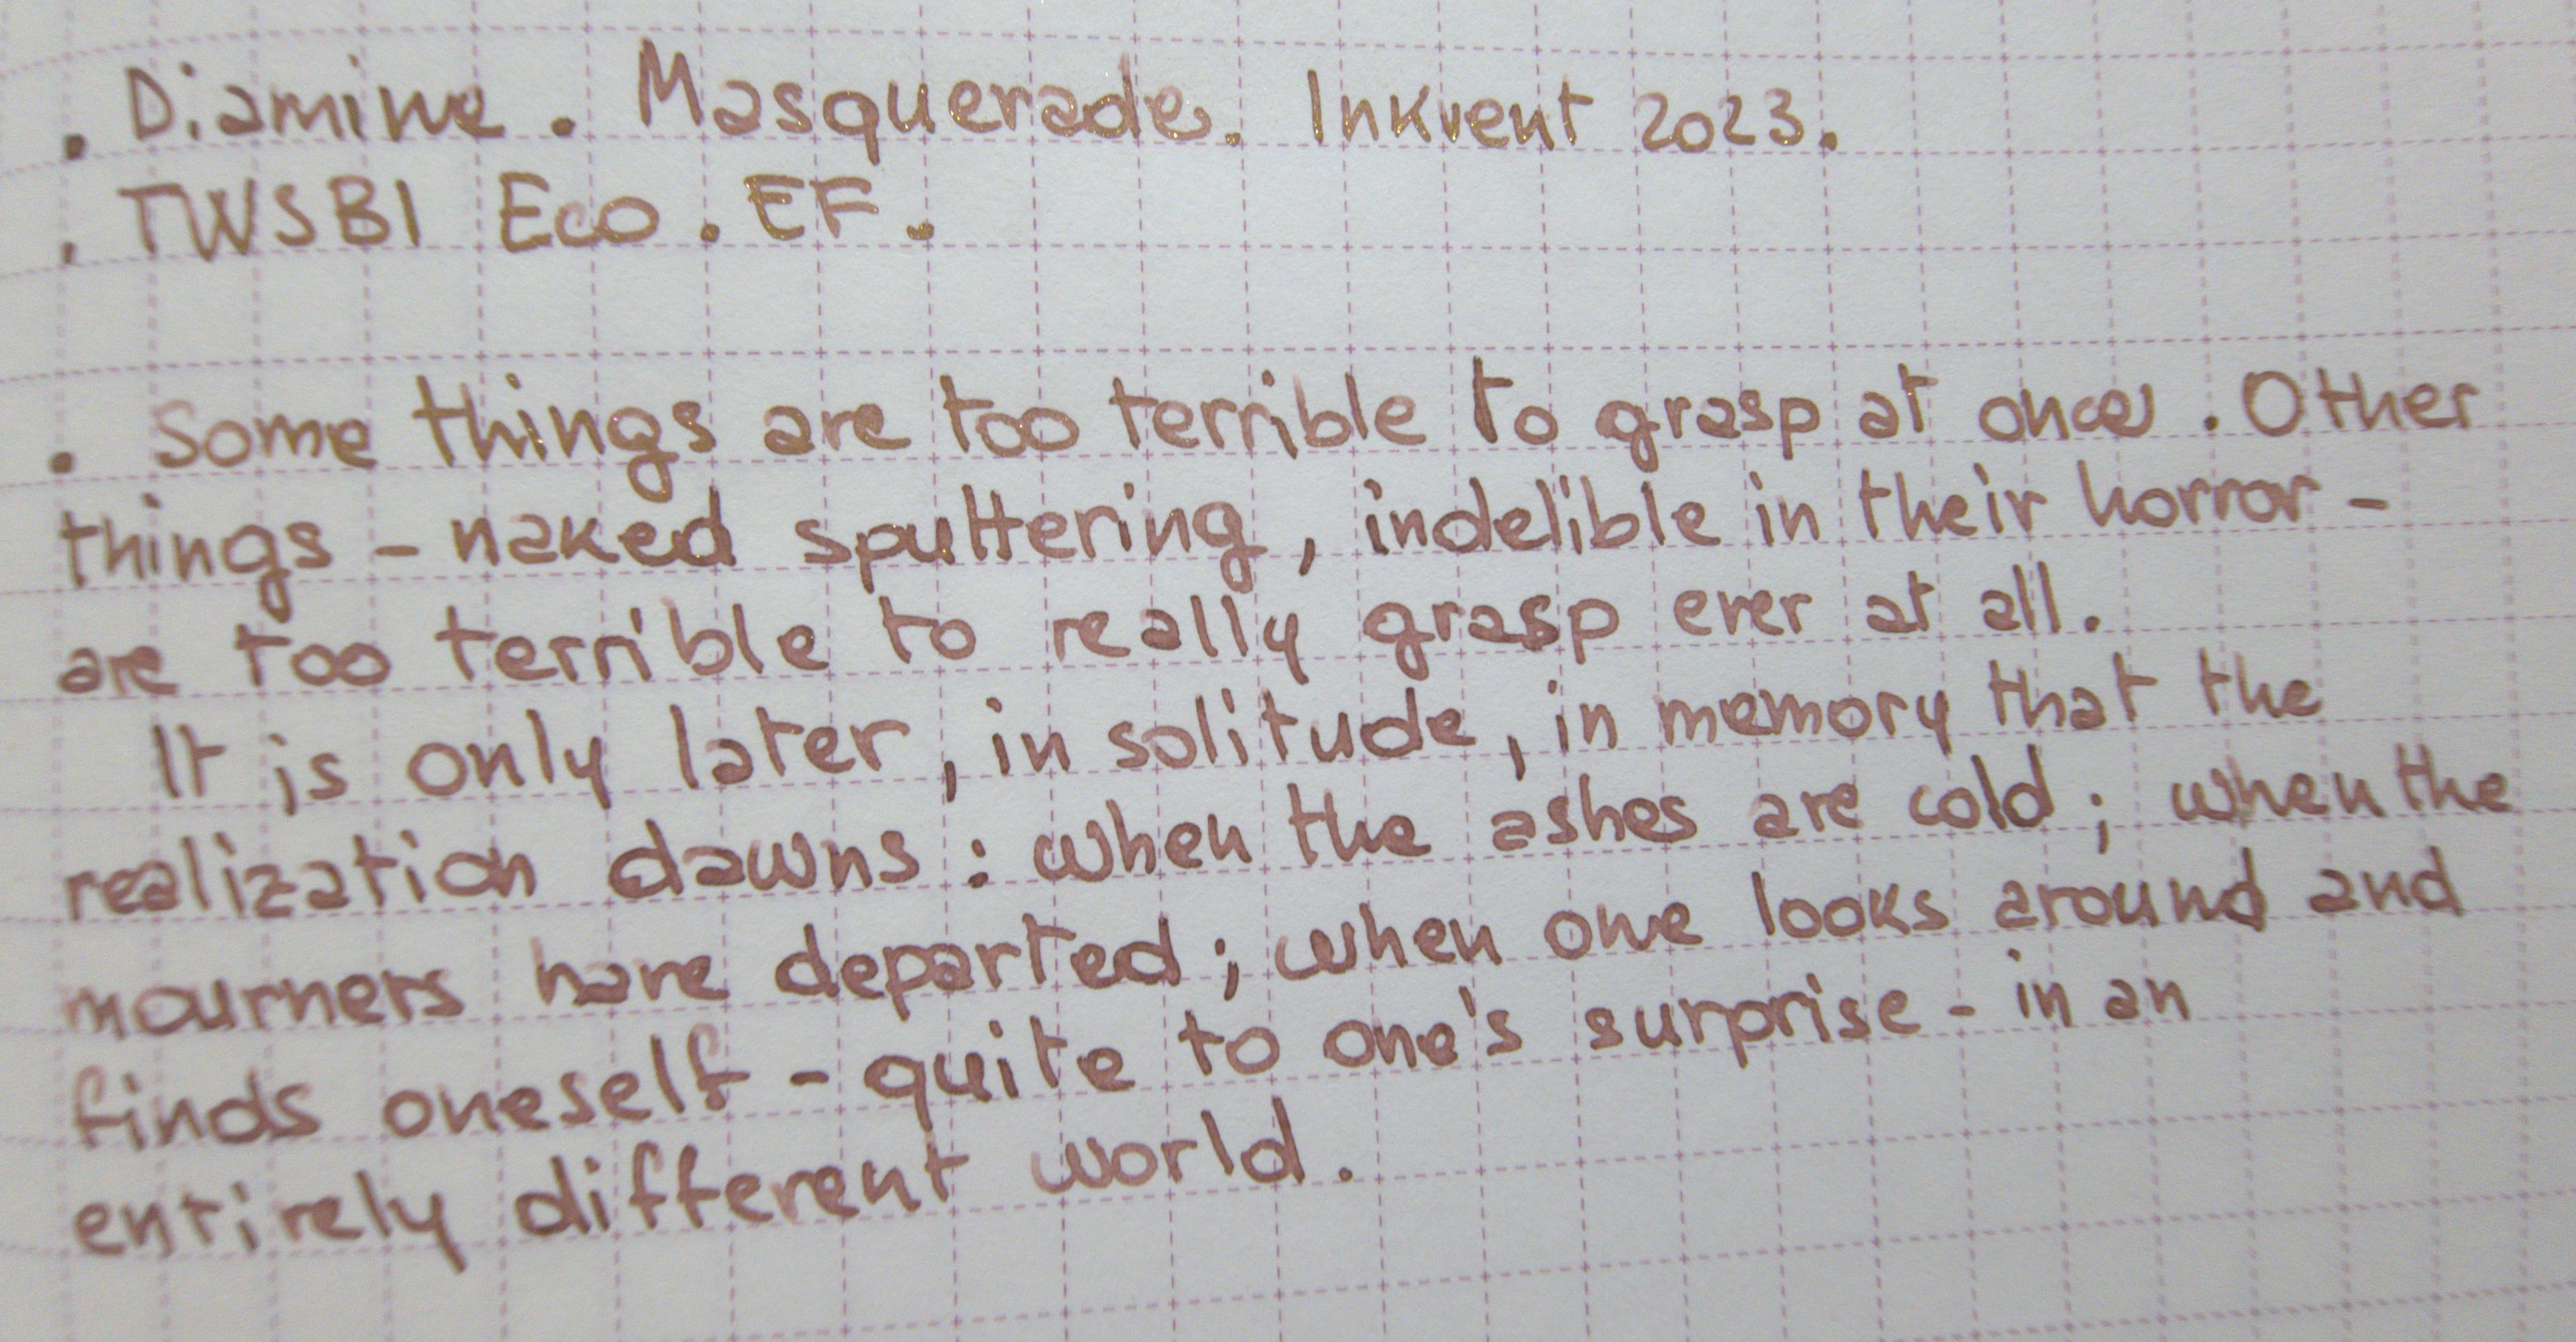 . Diamine. Masquerade. Inkvent 2023.
. TWSBI Eco. EF.
. Some things are too terrible to grasp at once. Other
things - naked sputtering, indelible in their horror -
are too terrible to really grasp ever at all.
It is only later, in solitude, in memory that the
realization dawns: when the ashes are cold; when the
mourners have departed; when one looks around and
finds oneself - quite to one's surprise - in an
entirely different world.